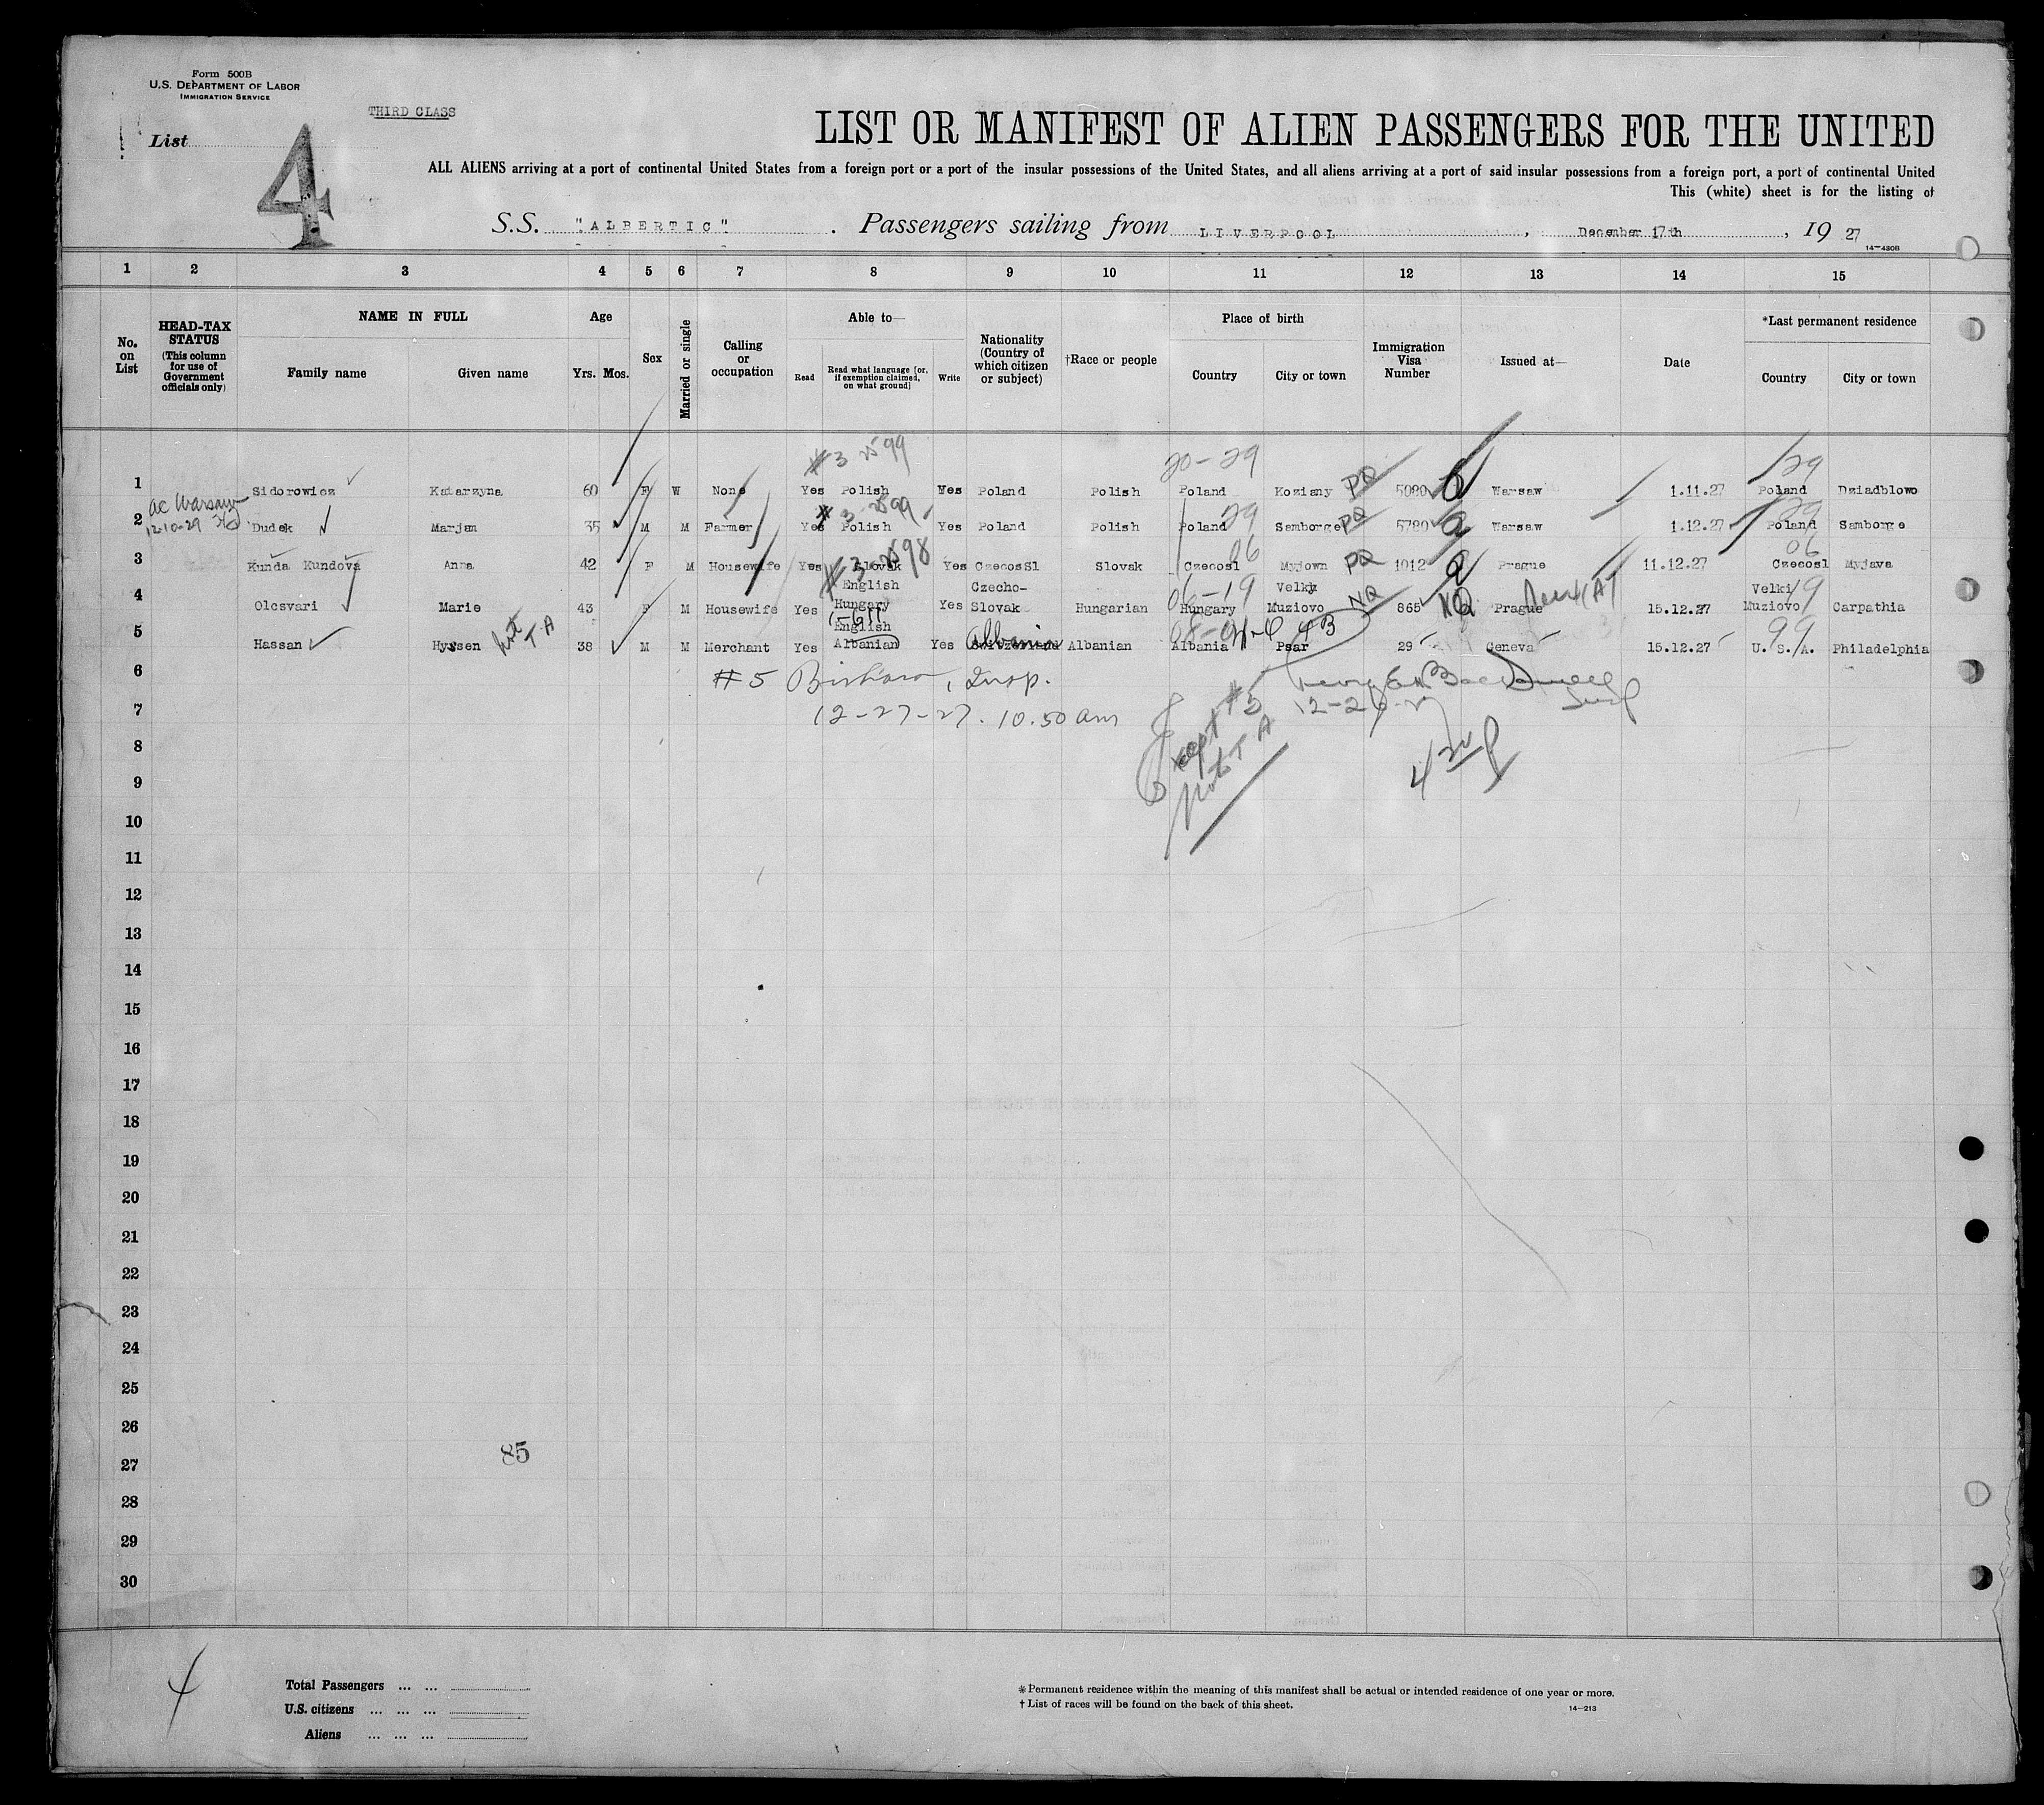 Form 500B
U.S. DEPARTMENT OF LABOR
IMMIGRATION SERVICE
THIRD CLASS
List 4
LIST OR MANIFEST OF ALIEN PASSENGERS FOR THE UNITED
ALL ALIENS arriving at a port of continental United States from a foreign port or a port of the insular possessions of the United States, and all aliens arriving at a port of said insular possessions from a foreign port, a port of continental United
This (white) sheet is for the listing of
S.S. "ALBERTIC" . Passengers sailing from LIVERPOOL , December 17th , 19 27
14-430B
1 2 3 4 5 6 7 8 9 10 11 12 13 14 15
No. on List
HEAD-TAX STATUS (This column for use of Government officials only)
NAME IN FULL
Family name Given name
Age
Yrs. Mos.
Sex
Married or single
Calling or occupation
Able to—
Read Read what language [or, if exemption claimed, on what ground] Write
Nationality (Country of which citizen or subject)
†Race or people
Place of birth
Country City or town
Immigration Visa Number
Issued at—
Date
*Last permanent residence
Country City or town
#3 2599 20-29 29
1 Sidorowicz Katarzyna 60 F W None Yes Polish Yes Poland Polish Poland Koziany PQ 5080 Warsaw 1.11.27 Poland Dziadblowo
ac Warsaw
12-10-29
#3-2599 29 29
2 Dudek Marjan 35 M M Farmer Yes Polish Yes Poland Polish Poland Samborge PQ 5780 Warsaw 1.12.27 Poland Samborge
#3-2598 06 06
3 Kunda Kundova Anna 42 F M Housewife Yes Slovak Yes CzecosSl Slovak Czecosl Myjown PQ 1012 Prague 11.12.27 Czecosl Myjava
4 Olcsvari Marie 43 F M Housewife Yes English Hungary Yes Czecho-Slovak Hungarian 06-19 Hungary Velky Muziovo NQ 865 NQ Prague 15.12.27 Velki Muziovo 19 Carpathia
5 Hassan Hyssen not T A 38 M M Merchant Yes English Albanian Yes Albania Switzerland Albanian Albania Psar 29 Geneva 15.12.27 U. S. A. 99 Philadelphia
6 #5 Insp.
7 12-27-27. 10.50 am
Except #5
not T A
8
9
10
11
12
13
14
15
16
17
18
19
20
21
22
23
24
25
26
85
27
28
29
30
4
Total Passengers ... ...
U.S. citizens ... ... ...
Aliens ... ... ...
* Permanent residence within the meaning of this manifest shall be actual or intended residence of one year or more.
† List of races will be found on the back of this sheet.
14-213